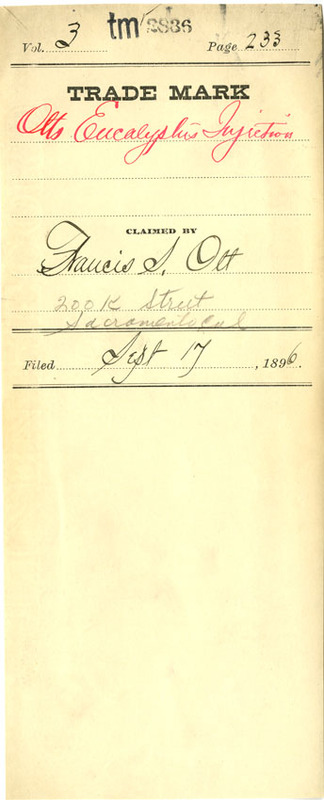 Vol. 3 tm 2836 Page 233
TRADE MARK
Otts Eucalyptus Injection
CLAIMED BY
Francis S. Ott
200 K Street
Sacramento Cal
Filed Sept 17, 1896.